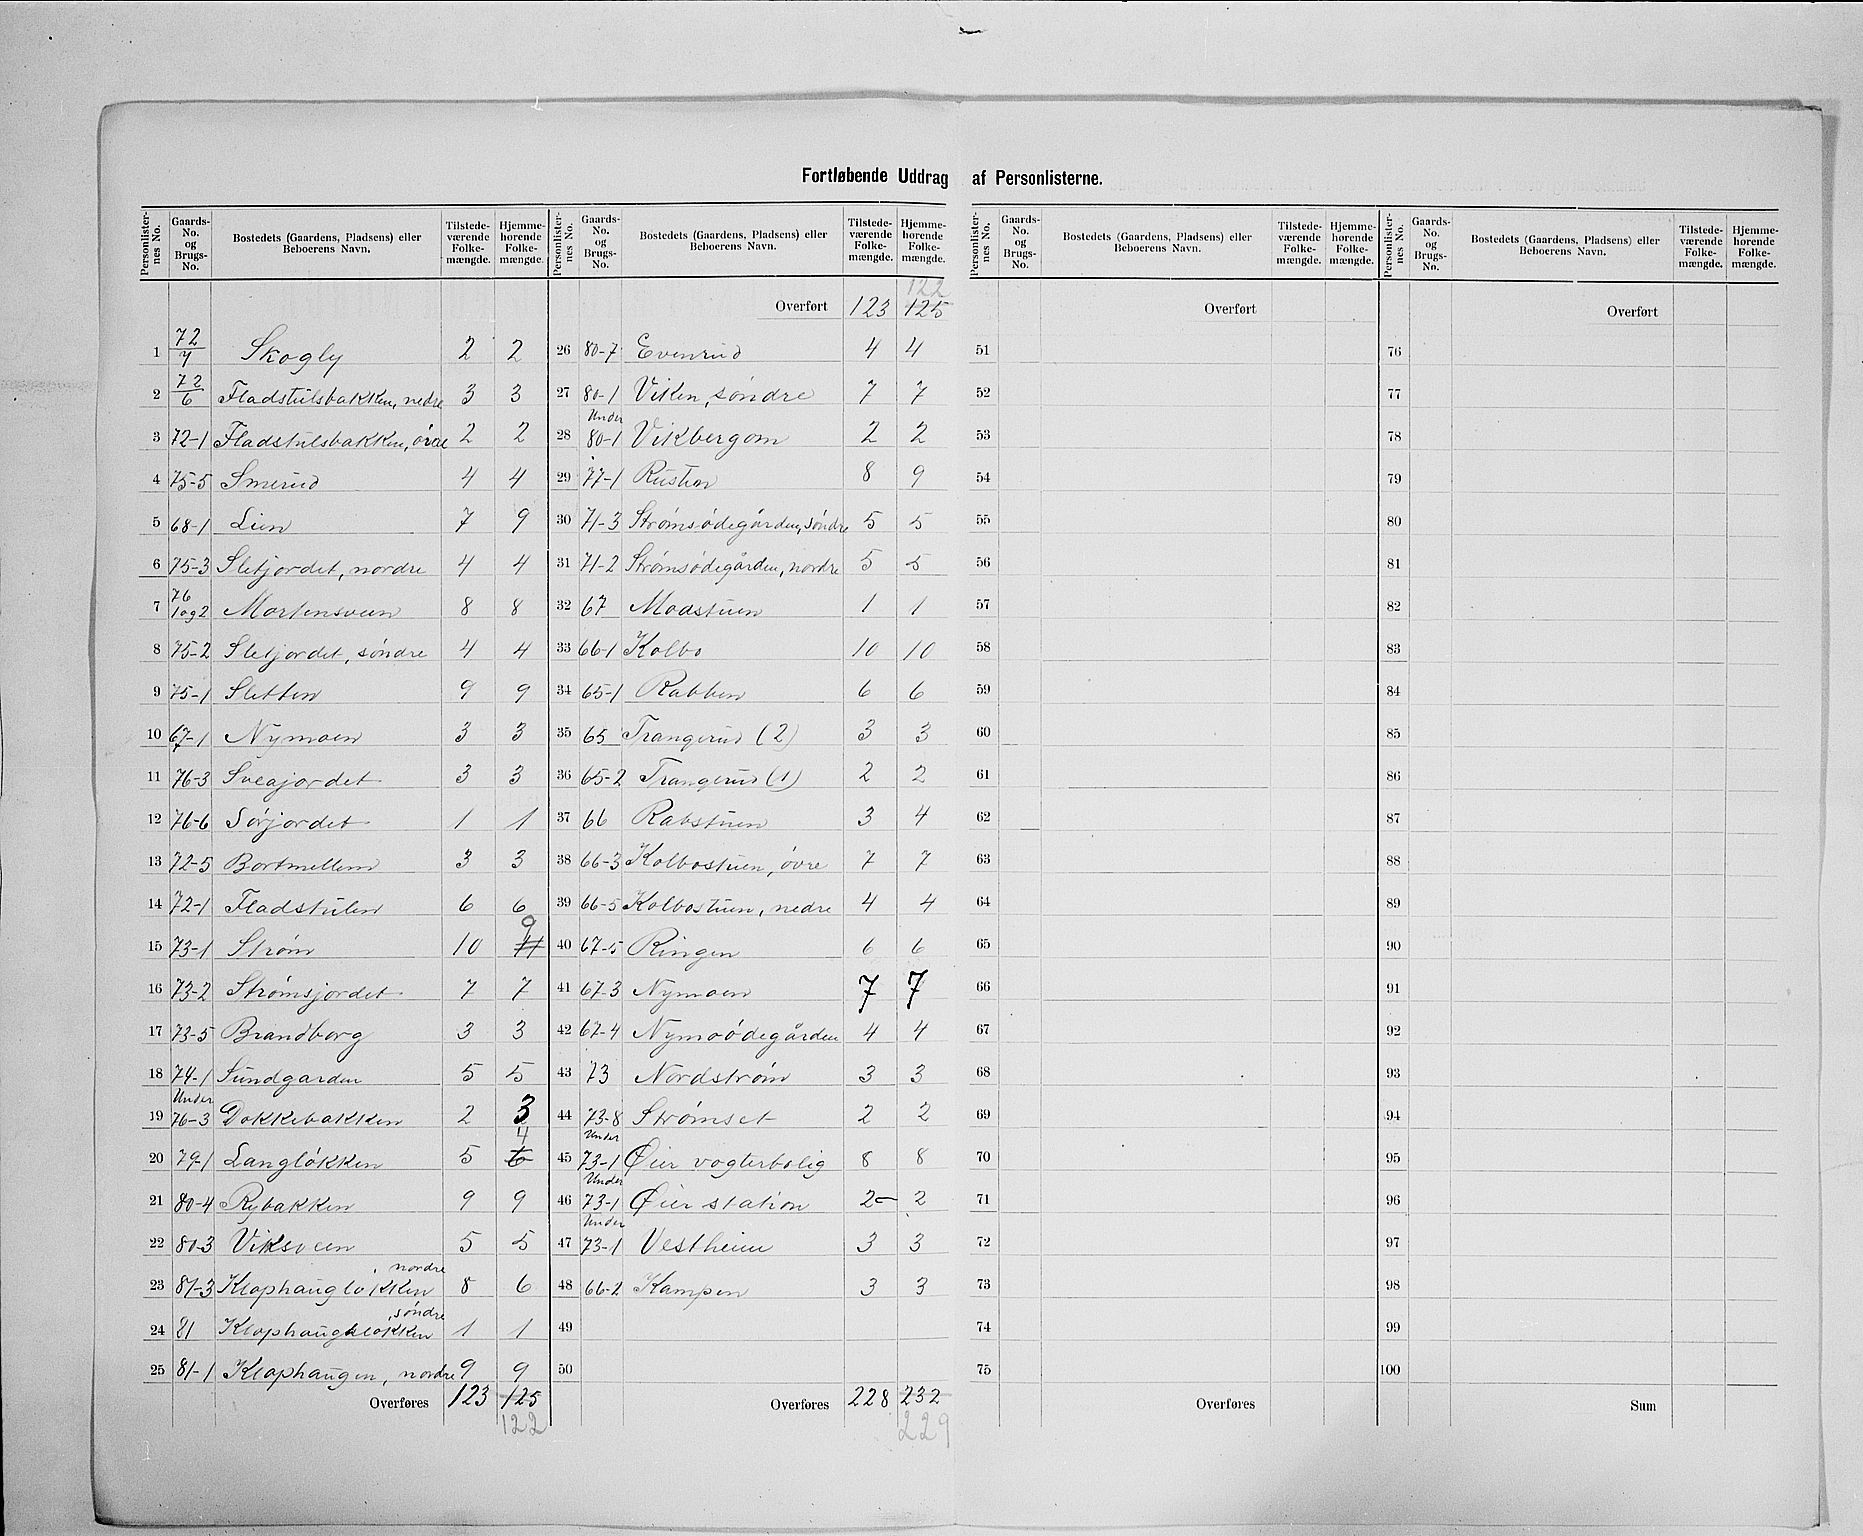 Fortløbende Uddrag af Personlisterne.
Personlister-nes No. | Gaards-No. og Brugs-No. | Bostedets (Gaardens, Pladsens) eller Beboerens Navn. | Tilstede-værende Folke-mængde. | Hjemme-hørende Folke-mængde.
1 72/7 Skogly 2 2
2 72/6 Fladstulsbakken, nedre 3 3
3 72-1 Fladstulsbakken, övre 2 2
4 75-5 Smerud 4 4
5 68-1 Lien 7 9
6 75-3 Sletjordet, nordre 4 4
7 76 1og2 Mortensveen 8 8
8 75-2 Sletjordet, söndre 4 4
9 75-1 Sletten 9 9
10 67-1 Nymoen 3 3
11 76-3 Sveajordet 3 3
12 76-6 Sörjordet 1 1
13 72-5 Bortmellem 3 3
14 72-1 Fladstulen 6 6
15 73-1 Strøm 10 11 9
16 73-2 Strømsjordet 7 7
17 73-5 Brandborg 3 3
18 74-1 Sundgarden 5 5
19 Under 76-3 Dokkebakken 2 3
20 79-1 Langlökken 5 6 4
21 80-4 Rybakken 9 9
22 80-3 Viksveen 5 5
23 81-3 Klophauglökken nordre 8 6
24 81 Klophauglökken söndre 1 1
25 81-1 Klophaugen, nordre 9 9
Overføres 123 125
122
Personlister-nes No. | Gaards-No. og Brugs-No. | Bostedets (Gaardens, Pladsens) eller Beboerens Navn. | Tilstede-værende Folke-mængde. | Hjemme-hørende Folke-mængde.
122
Overført 123 125
26 80-7 Evenrud 4 4
27 80-1 Viken, söndre 7 7
28 Under 80-1 Vikbergom 2 2
29 77-1 Rustion 8 9
30 71-3 Strømsödegården, söndre 5 5
31 71-2 Strømsödegården, nordre 5 5
32 67 Modstuen 1 1
33 66-1 Kolbo 10 10
34 65-1 Rabben 6 6
35 65 Trangerud (2) 3 3
36 65-2 Trangerud (1) 2 2
37 66 Rabstuen 3 4
38 66-3 Kolbostuen, övre 7 7
39 66-5 Kolbostuen, nedre 4 4
40 67-5 Ringen 6 6
41 67-3 Nymoen 7 7
42 67-4 Nymoödegården 4 4
43 73 Nordstrøm 3 3
44 73-8 Strømset 2 2
45 Under 73-1 Øier vogterbolig 8 8
46 Under 73-1 Øier station 2 2
47 Under 73-1 Vestheim 3 3
48 66-2 Kampen 3 3
49
50
Overføres 228 232
229
Personlister-nes No. | Gaards-No. og Brugs-No. | Bostedets (Gaardens, Pladsens) eller Beboerens Navn. | Tilstede-værende Folke-mængde. | Hjemme-hørende Folke-mængde.
Overført
51
52
53
54
55
56
57
58
59
60
61
62
63
64
65
66
67
68
69
70
71
72
73
74
75
Overføres
Personlister-nes No. | Gaards-No. og Brugs-No. | Bostedets (Gaardens, Pladsens) eller Beboerens Navn. | Tilstede-værende Folke-mængde. | Hjemme-hørende Folke-mængde.
Overført
76
77
78
79
80
81
82
83
84
85
86
87
88
89
90
91
92
93
94
95
96
97
98
99
100
Sum